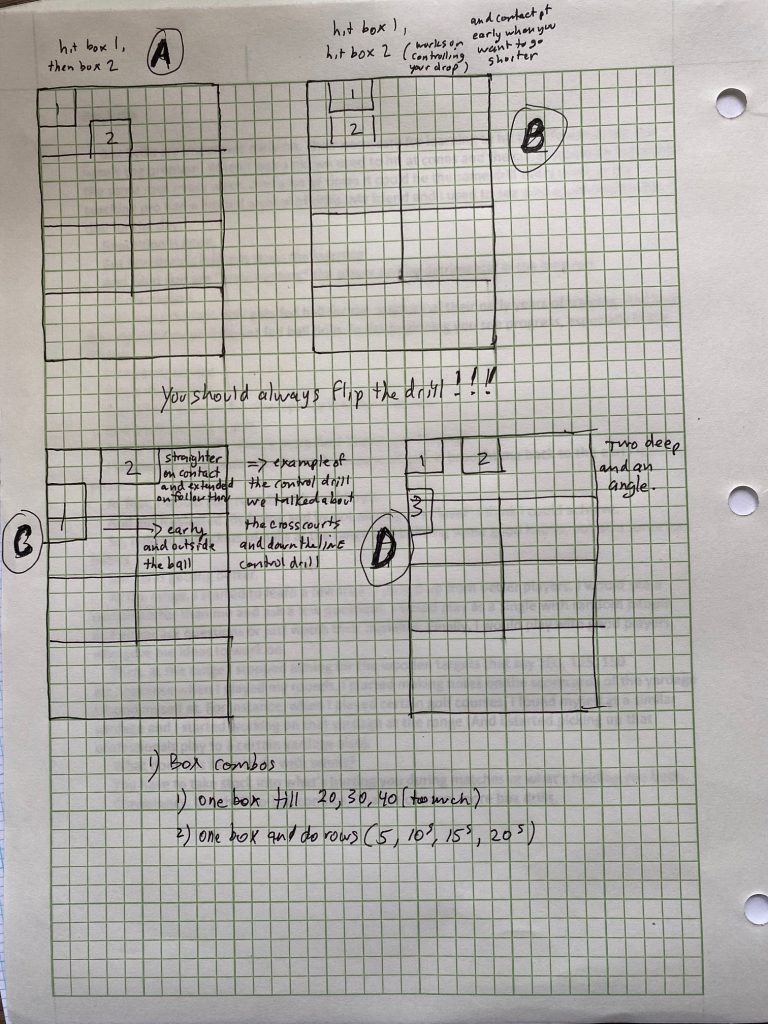 hit box 1,
then box 2
A
hit box 1,
hit box 2 (works on
controlling
your drop)
and contact pt
early when you
want to go
shorter
1
2
1
2
B
You should always flip the drill!!!
2
straighter
on contact
and extended
on follow thru
1
→ early
and outside
the ball
C
=> example of
the control drill
we talked about
the crosscourts
and down the line
control drill
1
2
3
D
Two deep
and an
angle.
1) Box combos
1) one box till 20, 30, 40 (too much)
2) one box and do rows (5, 10s, 15s, 20s)